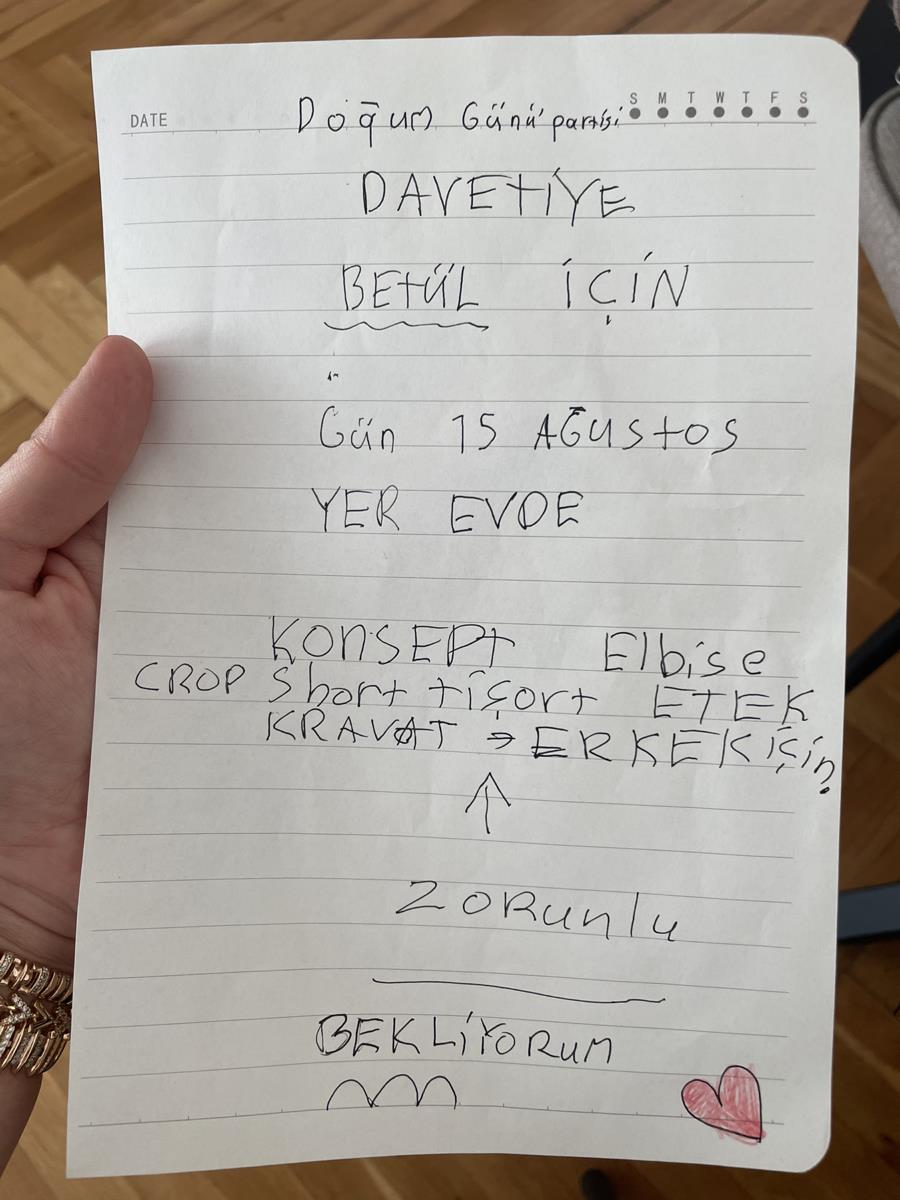 DATE
S M T W T F S
Doğum Günü partisi
DAVETİYE
BETÜL İÇİN
Gün 15 AĞUSTOS
YER EVDE
KONSEPT Elbise
CROP Short tişort ETEK
KRAVAT → ERKEK İçin
↑
ZORunlu
BEKLİYORUM